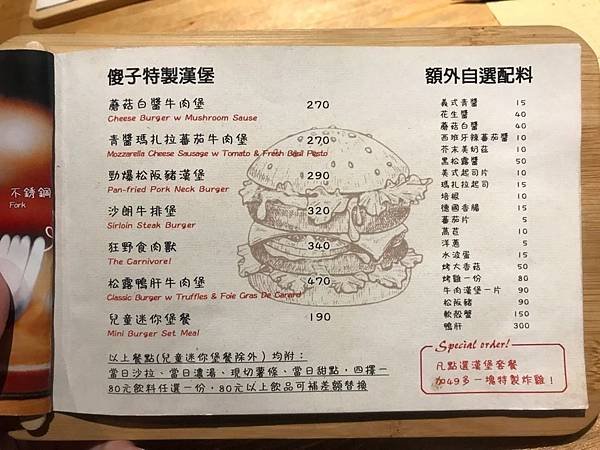 不銹鋼
Fork
傻子特製漢堡
蘑菇白醬牛肉堡 270
Cheese Burger w Mushroom Sause
青醬瑪扎拉蕃茄牛肉堡 270
Mozzarella Cheese Sausage w Tomato & Fresh Basil Pesto
勁爆松阪豬漢堡 290
Pan-fried Pork Neck Burger
沙朗牛排堡 320
Sirloin Steak Burger
狂野食肉獸 340
The Carnivore!
松露鴨肝牛肉堡 470
Classic Burger w Truffles & Foie Gras De Canard
兒童迷你堡餐 190
Mini Burger Set Meal
以上餐點(兒童迷你堡餐除外)均附：
當日沙拉、當日濃湯、現切薯條、當日甜點，四擇一
80元飲料任選一份，80元以上飲品可補差額替換
額外自選配料
義式青醬 15
花生醬 40
蘑菇白醬 40
西班牙辣蕃茄醬 10
芥末美奶茲 10
黑松露醬 50
美式起司片 10
瑪扎拉起司 15
培根 10
德國香腸 15
蕃茄片 5
萵苣 10
洋蔥 5
水波蛋 15
烤大香菇 50
烤雞一份 80
牛肉漢堡一片 90
松阪豬 90
軟殼蟹 150
鴨肝 300
Special order!
凡點選漢堡套餐
加49多一塊特製炸雞！